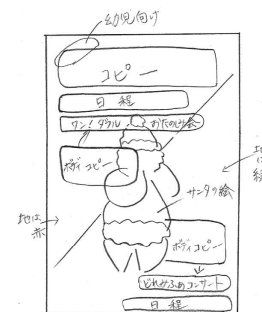 幼児向け
コピー
日程
ワン！ダフル おたのしみ会
ボディコピー
サンタの絵
地は
赤
ボディコピー
どれみふぁコンサート
日程